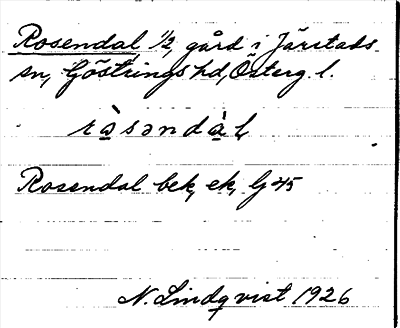 Rosendal 1/2, gård i Järstads
sn, Göstrings hd, Österg. l.
ràsəndàl,
Rosendal bek, ek, G 45
N. Lindqvist 1926